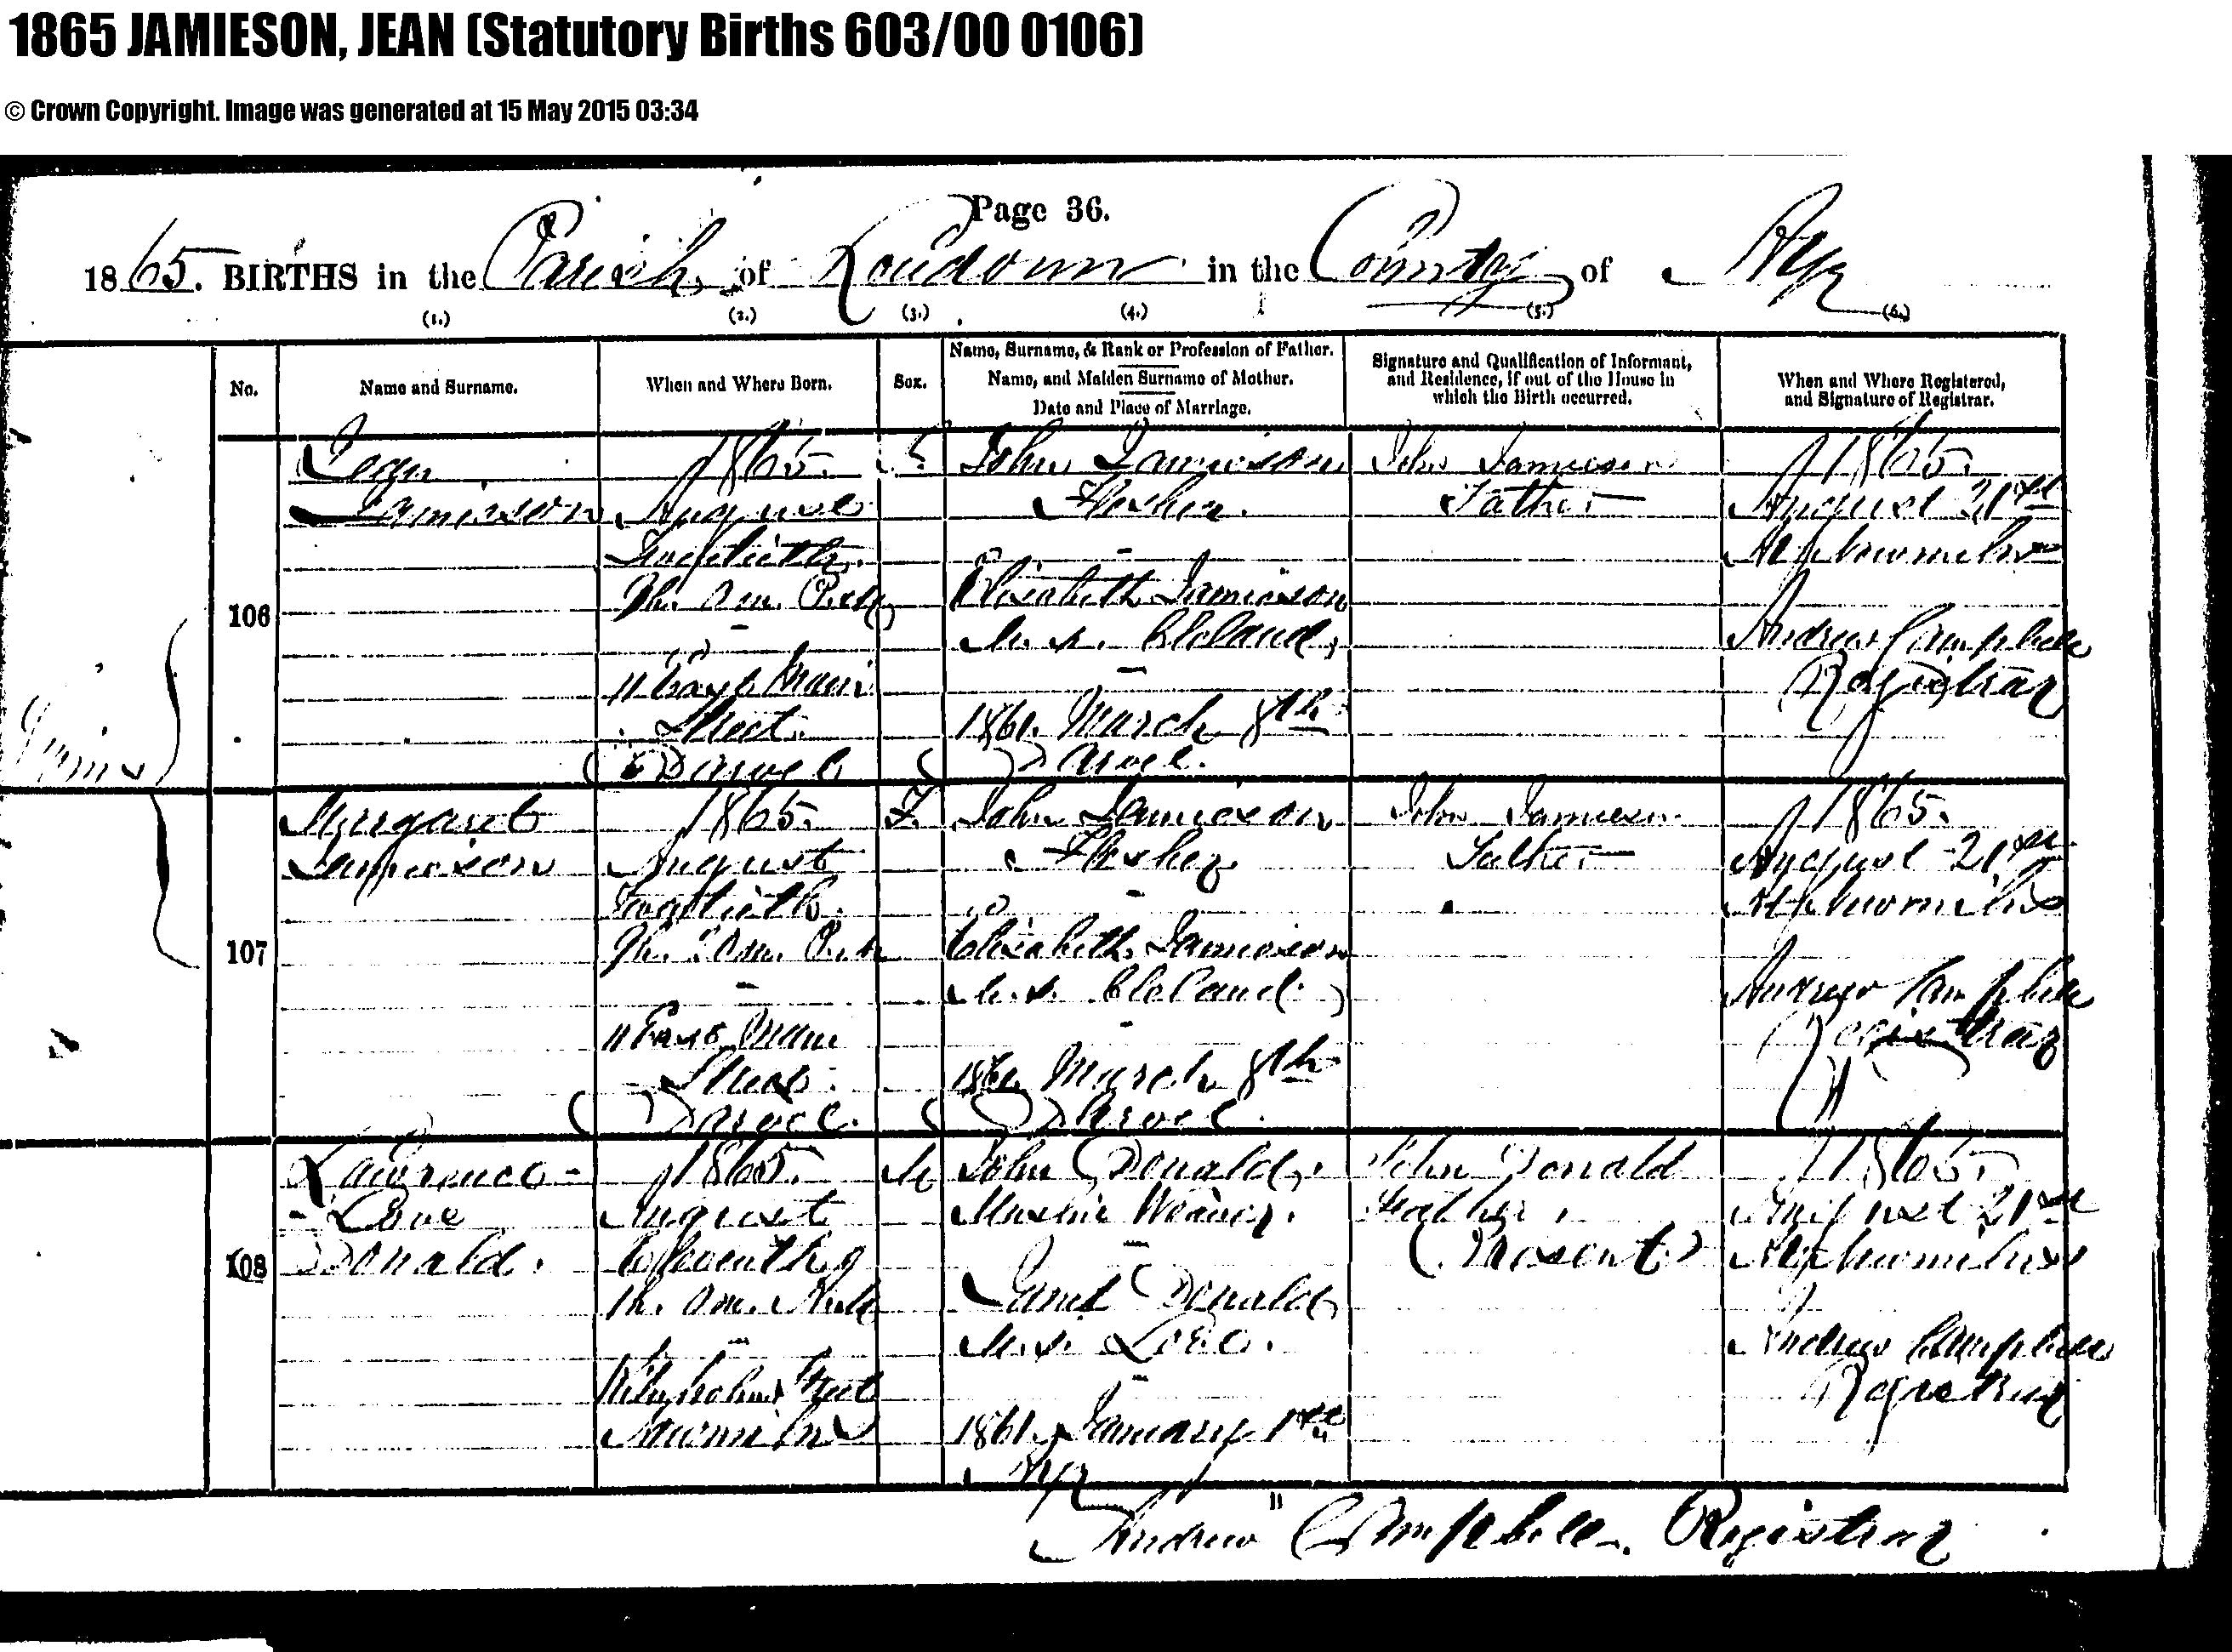 1865 JAMIESON, JEAN (Statutory Births 603/00 0106)
© Crown Copyright. Image was generated at 15 May 2015 03:34
Page 36.
1865. BIRTHS in the Parish of Loudoun in the County of Ayr
(1.) (2.) (3.) (4.) (5.) (6.)
No.
Name and Surname.
When and Where Born.
Sex.
Name, Surname, & Rank or Profession of Father.
Name, and Maiden Surname of Mother.
Date and Place of Marriage.
Signature and Qualification of Informant,
and Residence, if out of the House in
which the Birth occurred.
When and Where Registered,
and Signature of Registrar.
Twins
106
Jean
Jamieson
1865.
August
0h. 0m.
11 East Main
Street
Darvel
F.
John Jamieson
Flesher.
Elizabeth Jamieson
M.S. Cleland
1861. March 8th
Darvel.
John Jamieson
Father
1865.
August 21st
At Newmilns
Andrew Campbell
Registrar
107
Margaret
Jamieson
1865.
August
11 East Main
Street
Darvel.
F.
John Jamieson
Flesher
Elizabeth Jamieson
M.S. Cleland
1861. March 8th
Darvel.
John Jamieson
Father
1865.
August 21st
At Newmilns
Andrew Campbell
Registrar
108
Lawrence
Love
Donald.
1865.
August
Eleventh
Street
Newmilns
M
John Donald,
Muslin Weaver.
Janet Donald
M.S. Love.
1861, January 1st
Ayr
John Donald
Father
(Present)
1865.
August 21st
At Newmilns
Andrew Campbell
Registrar
Andrew Campbell. Registrar